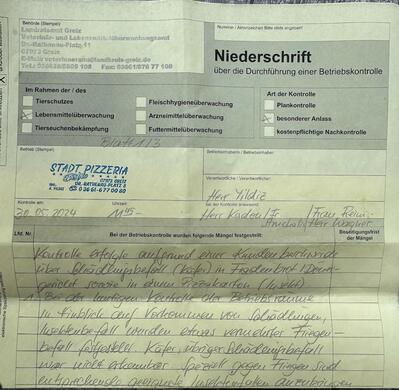 Behörde (Stempel)
Landratsamt Greiz
Veterinär- und Lebensmittelüberwachungsamt
Dr.-Rathenau-Platz 11
07973 Greiz
Nummer / Aktenzeichen
Niederschrift
über die Durchführung einer Betriebskontrolle
Im Rahmen der / des
Tierschutzes
Lebensmittelüberwachung
Tierseuchenbekämpfung
Fleischhygieneüberwachung
Arzneimittelüberwachung
Futtermittelüberwachung
Art der Kontrolle
Plankontrolle
besonderer Anlass
kostenpflichtige Nachkontrolle
Blatt 1/3
Betrieb (Stempel)
STADT PIZZERIA
07973 GREIZ
DR. RATHENAU-PLATZ
0 36 61-6 77 00 80
Betriebsinhaberin / Betriebsinhaber:
Verantwortliche / Verantwortlicher:
Herr Yildiz
Uhrzeit:
20.05.2024 11 45
Herr Kaden / Fr. Frau
Herr Wagner
Lfd. Nr.
Bei der Betriebskontrolle wurden folgende Mängel festgestellt:
Beseitigungsfrist der Mängel
Kontrolle erfolgte aufgrund einer Kundenbeschwerde
über Schädlingsbefall (Käfer) in Fladenbrot / Döner-
gericht sowie in einem Pizzakarton (Insekt)
1 Bei der heutigen Kontrolle der Betriebsräume
in Hinblick auf Vorkommen von Schädlingen,
Insektenbefall wurden etwas vermehrter Fliegen-
befall festgestellt. Käfer, übriger Schädlingsbefall
war nicht erkennbar. Speziell gegen Fliegen sind
entsprechende geeignete Insektenfallen anzubringen